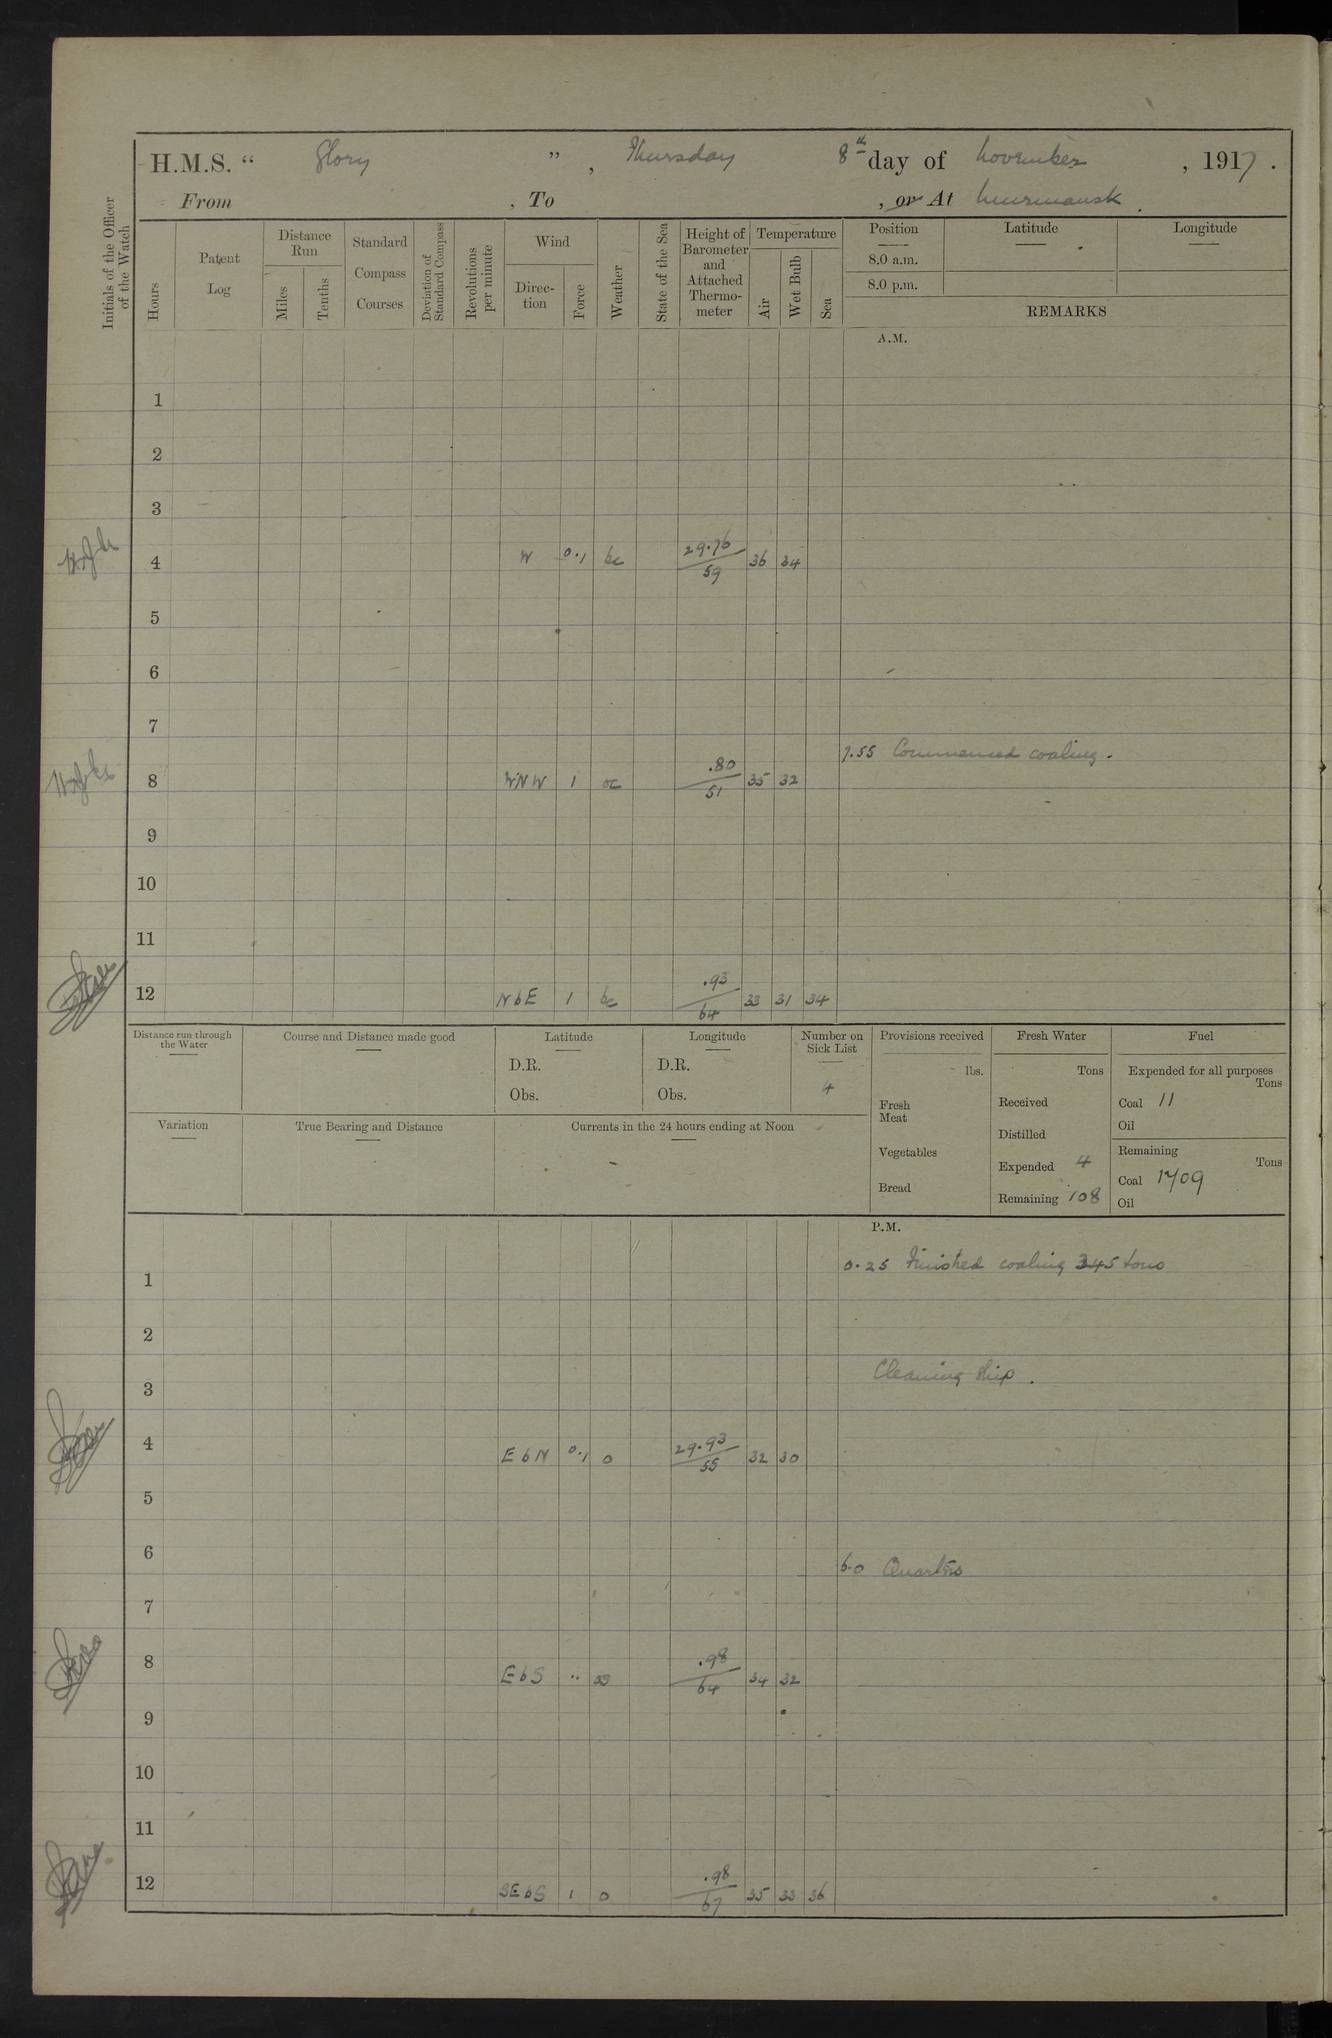 H.M.S. “ Glory ” , Thursday 8th day of November , 1917 .
From , To , or At Murmansk .
Initials of the Officer of the Watch
Hours
Patent Log
Distance Run
Miles
Tenths
Standard Compass Courses
Deviation of Standard Compass
Revolutions per minute
Wind
Direction
Force
Weather
State of the Sea
Height of Barometer and Attached Thermometer
Temperature
Air
Wet Bulb
Sea
Position
8.0 a.m.
8.0 p.m.
Latitude
Longitude
REMARKS
A.M.
1
2
3
4 W 0.1 bc 29.76/59 36 34
5
6
7
7.55 Commenced coaling.
8 WNW 1 oc .80/51 35 32
9
10
11
12 NbE 1 bc .93/64 33 31 34
Distance run through the Water
Course and Distance made good
Latitude
D.R.
Obs.
Longitude
D.R.
Obs.
Number on Sick List
4
Provisions received
lbs.
Fresh Meat
Vegetables
Bread
Fresh Water
Tons
Received
Distilled
Expended 4
Remaining 108
Fuel
Expended for all purposes
Tons
Coal 11
Oil
Remaining
Tons
Coal 1709
Oil
Variation
True Bearing and Distance
Currents in the 24 hours ending at Noon
P.M.
0.25 Finished coaling 345 tons
1
2
Cleaning ship.
3
4 EbN 0.1 o 29.93/55 32 30
5
6
6.0 Quarters
7
8 EbS .. .98/64 34 32
9
10
11
12 SEbS 1 o .98/67 35 33 36